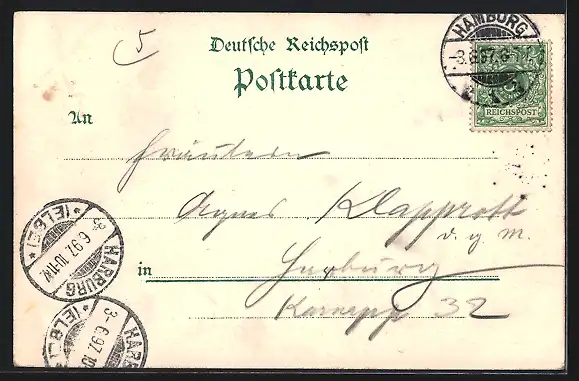 5
Deutsche Reichspost
Postkarte
HAMBURG
-3.6.97.8-
1.
REICHSPOST
An
Fräulein
Agnes Klapprott
v. g. m.
in Harburg
Karnapp 32
HARBURG
3-6.97. 10-11V.
*(ELBE)*
HARB
3-6.97. 10
*(ELBE)